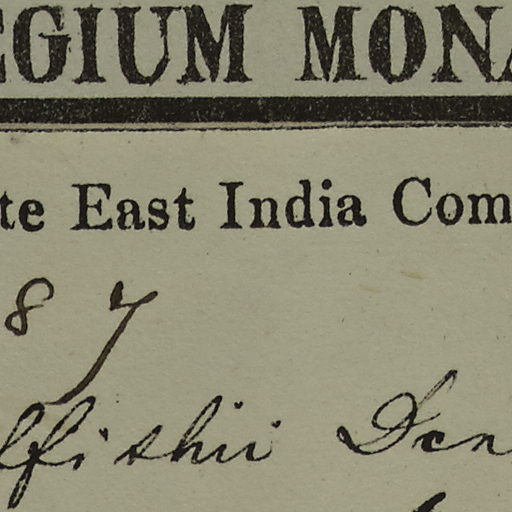 EGIUM MONA
te East India Com
87
lfishii Den